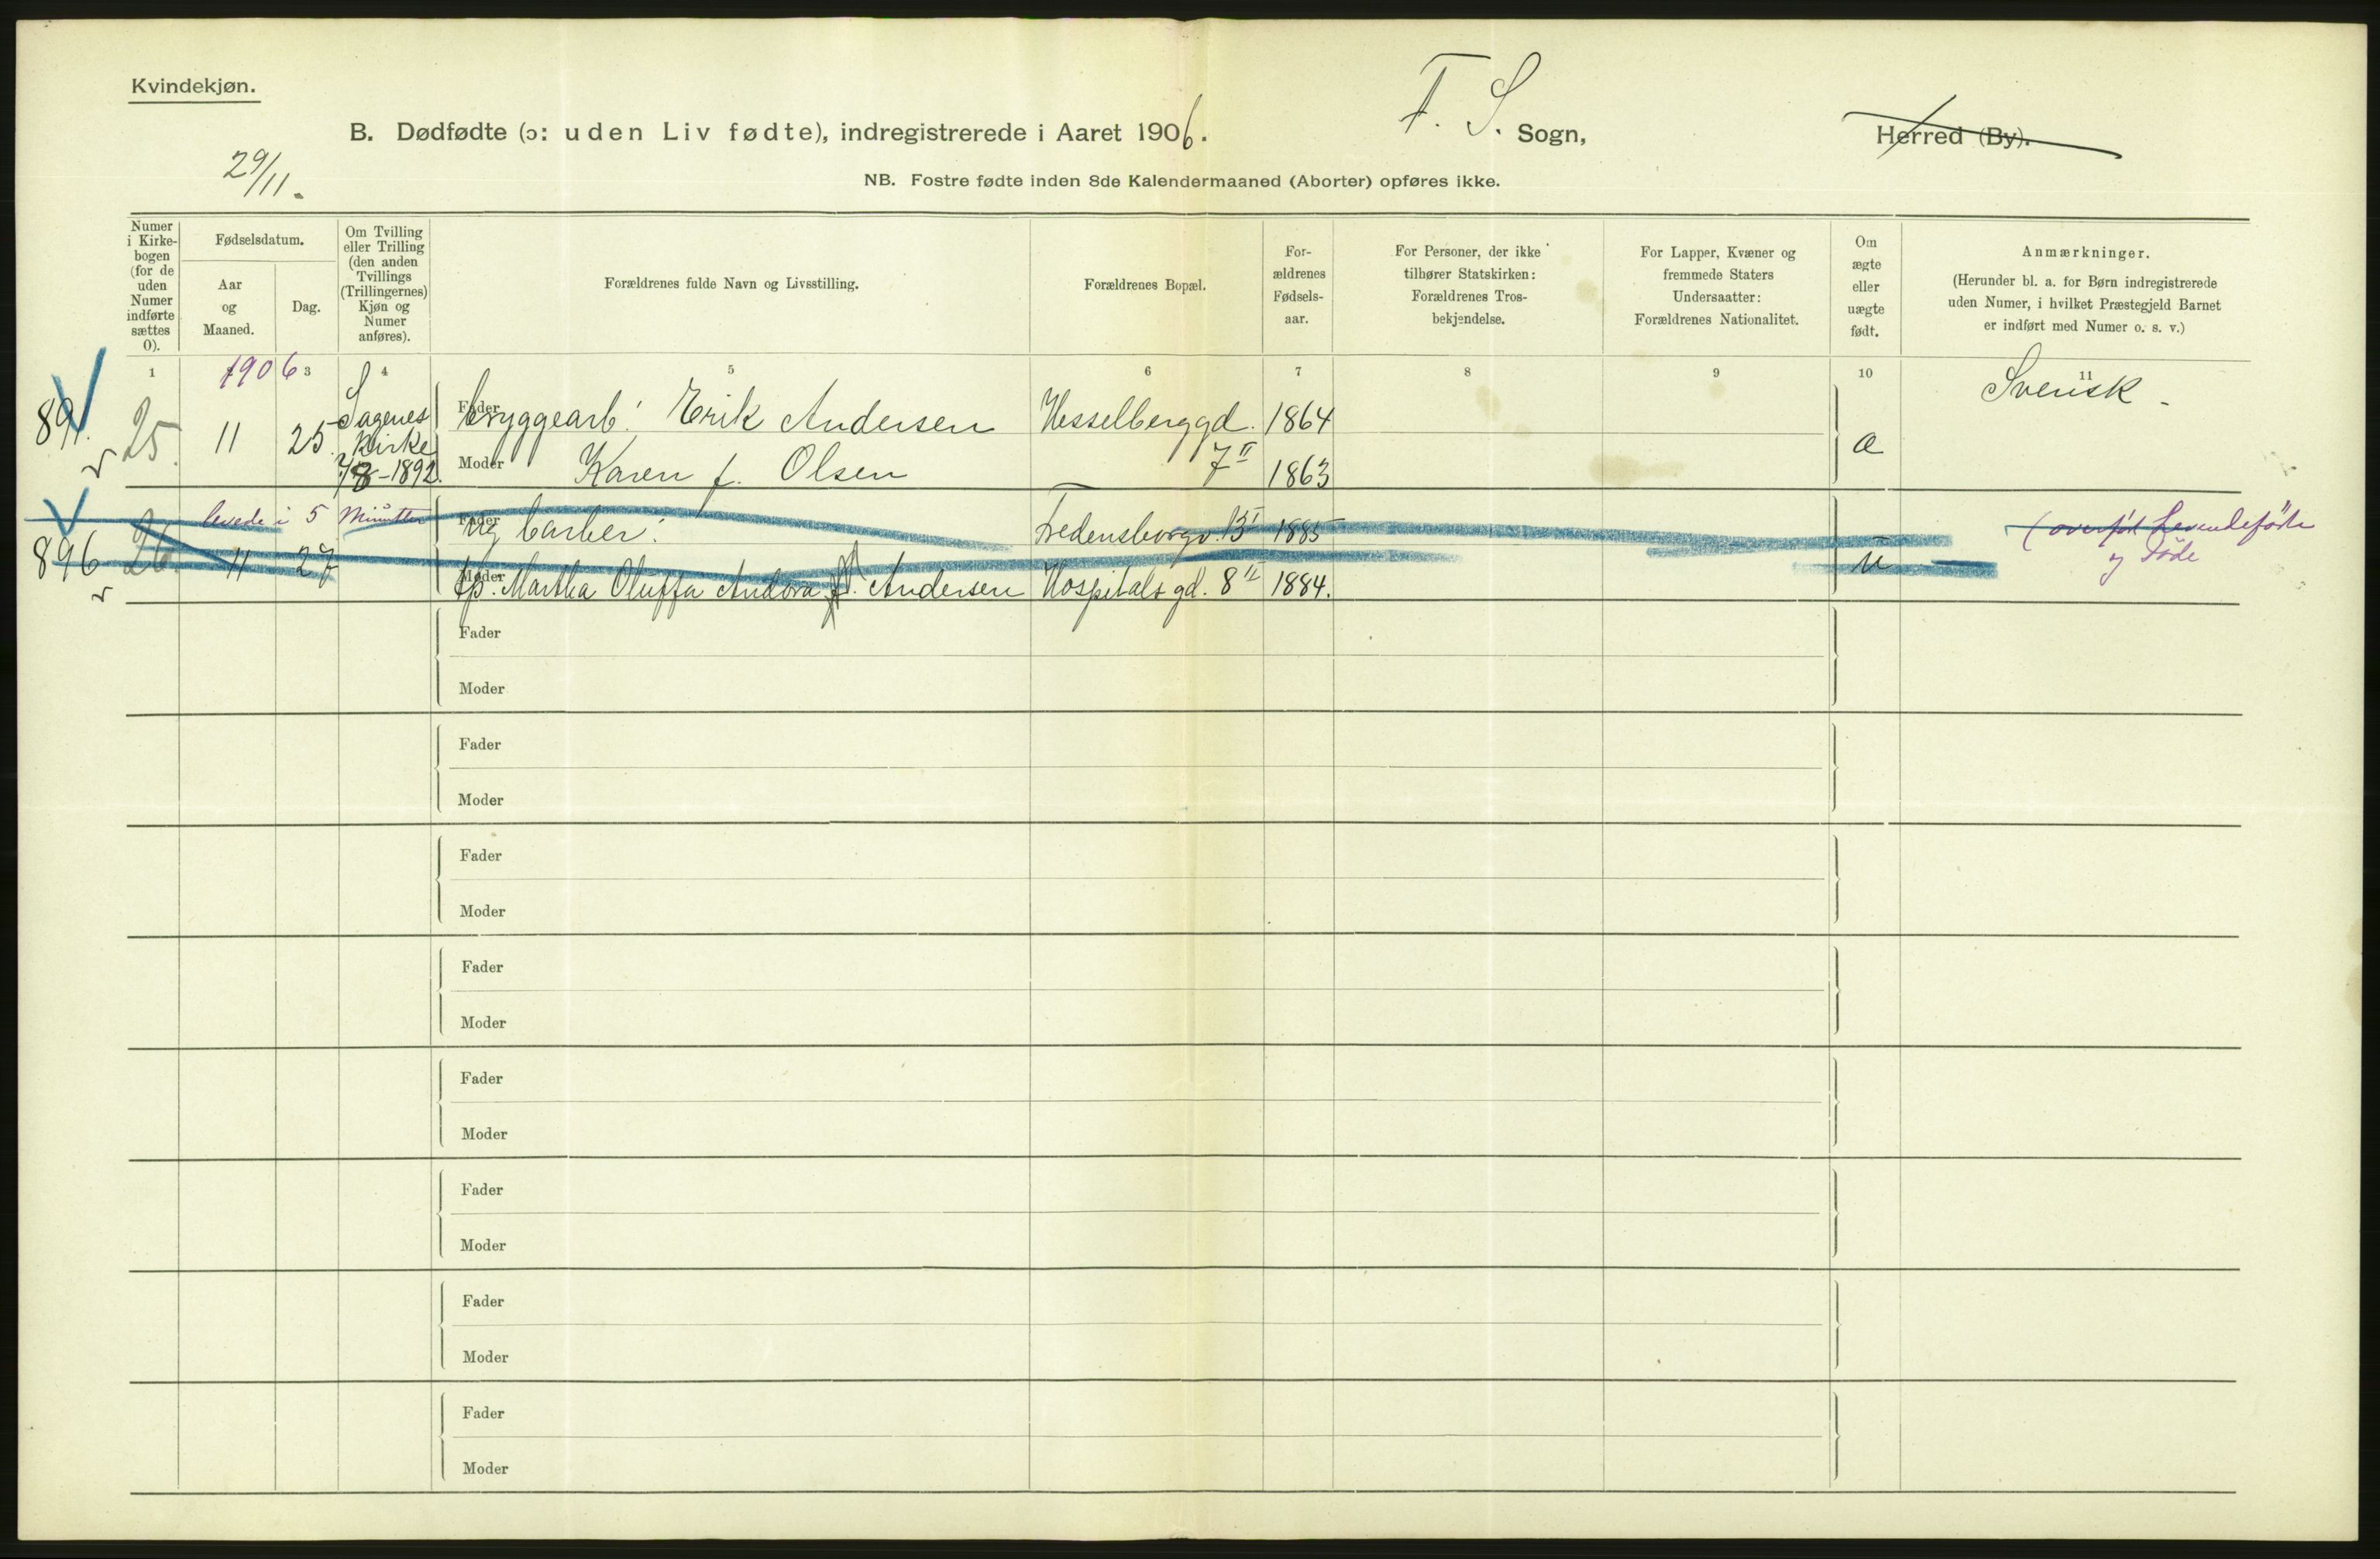 Kvindekjøn.
B. Dødfødte (ɔ: uden Liv fødte), indregistrerede i Aaret 1906.
F. S. Sogn,
Herred (By).
29/11.
NB. Fostre fødte inden 8de Kalendermaaned (Aborter) opføres ikke.
Numer i Kirke-bogen (for de uden Numer indførte sættes 0).
Fødselsdatum.
Aar og Maaned.
Dag.
Om Tvilling eller Trilling (den anden Tvillings (Trillingernes) Kjøn og Numer anføres).
Forældrenes fulde Navn og Livsstilling.
Forældrenes Bopæl.
For-ældrenes Fødsels-aar.
For Personer, der ikke tilhører Statskirken: Forældrenes Tros-bekjendelse.
For Lapper, Kvæner og fremmede Staters Undersaatter: Forældrenes Nationalitet.
Om ægte eller uægte født.
Anmærkninger.
(Herunder bl. a. for Børn indregistrerede uden Numer, i hvilket Præstegjeld Barnet er indført med Numer o. s. v.)
1 1906 3 4 5 6 7 8 9 10 11
891. 25. 11 25. Sagenes Kirke 7/8-1892.
Fader bryggearb. Erik Andersen Hesselberggd. 1864
Moder Karen f. Olsen 7 II 1863
a
Svensk -
levede i 5 Minutter
896 26. 11 27
Fader Ug barber. Fredensborgv. 13 I 1885
Moder Martha Oluffa Andersen Hospitalsgd. 8 II 1884.
u
(overført Levendefødte
og Døde
Fader
Moder
Fader
Moder
Fader
Moder
Fader
Moder
Fader
Moder
Fader
Moder
Fader
Moder
Fader
Moder